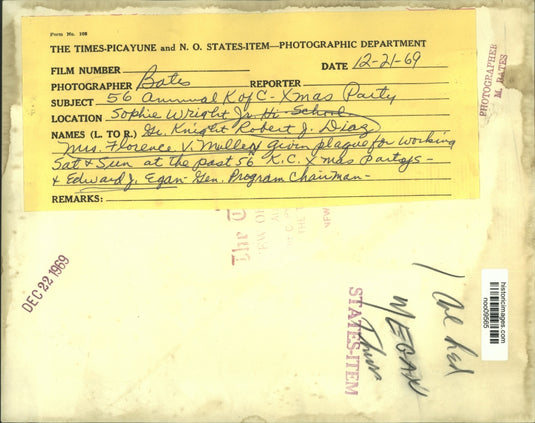 Form No. 108
THE TIMES-PICAYUNE and N. O. STATES-ITEM—PHOTOGRAPHIC DEPARTMENT
FILM NUMBER DATE 12-21-69
PHOTOGRAPHER Bates REPORTER
SUBJECT 56 Annual K of C - Xmas Party
LOCATION Sophie Wright Jr. Hi-School
NAMES (L. TO R.) Gr. Knight Robert J. Diaz
Mrs. Florence V. Mullen given plaque for working
Sat & Sun at the past 56 K.C. Xmas Partys -
& Edward J. Egan - Gen. Program Chairman -
REMARKS:
PHOTOGRAPHER
M. BATES
DEC 22 1969
STATES-ITEM
1
MEGAN
historicimages.com
noo09565